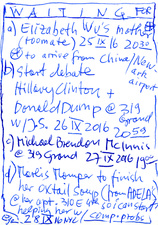 WAITING FOR
a) Elizabeth Wu's mother
(roomate) 25 IX 16 2030
to arrive from China/New
ark airport
b) start debate
Hillary Clinton +
Donald Dump @ 319
Grand
w/J.S. 26 IX 2016 2059
c) Michael Brendon McInnis
@ 319 Grand 27 IX 2016
d) Theris Thumper to finish
her Oxtail Soup (from ADE/AS
@ her apt. 310E
helping her w/ comp. probs
28 IX 16 NYC